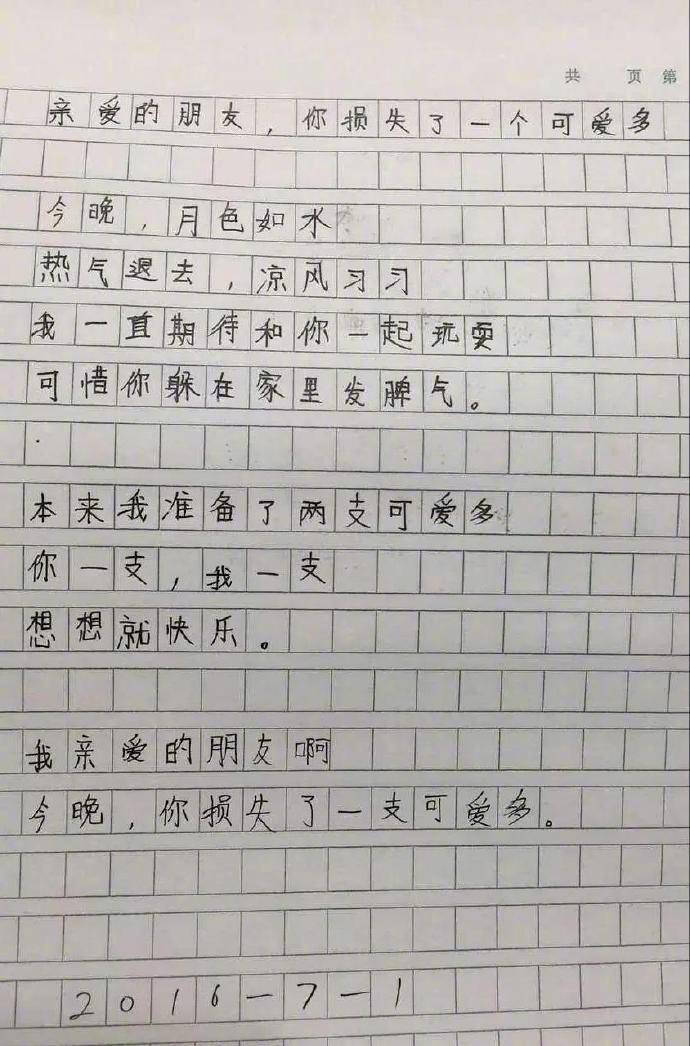 共 页 第
亲爱的朋友，你损失了一个可爱多
今晚，月色如水
热气退去，凉风习习
我一直期待和你一起玩耍
可惜你躲在家里发脾气。
本来我准备了两支可爱多
你一支，我一支
想想就快乐。
我亲爱的朋友啊
今晚，你损失了一支可爱多。
2016-7-1